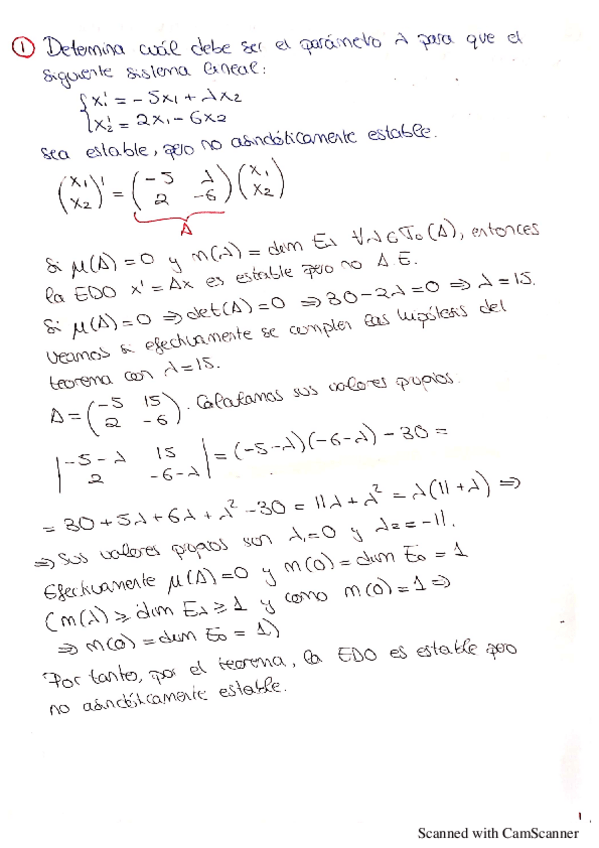 ① Determina cuál debe ser el parámetro λ para que el
siguiente sistema lineal:
{x₁' = -5x₁ + λx₂
{x₂' = 2x₁ - 6x₂
sea estable, pero no asintóticamente estable.
(x₁ x₂)' = (-5 λ 2 -6)(x₁ x₂)
A
Si μ(A) = 0 y m(λ) = dim Eλ ∀λ∈σ₀(A), entonces
la EDO x' = Ax es estable pero no A E.
Si μ(A) = 0 ⇒ det(A) = 0 ⇒ 30 - 2λ = 0 ⇒ λ = 15.
Veamos si efectivamente se cumplen las hipótesis del
teorema con λ = 15.
A = (-5 15 2 -6). Calculamos sus valores propios.
|-5-λ 15 2 -6-λ| = (-5-λ)(-6-λ) - 30 =
= 30 + 5λ + 6λ + λ² - 30 = 11λ + λ² = λ(11 + λ) ⇒
⇒ Sus valores propios son λ₁ = 0 y λ₂ = -11.
Efectivamente μ(A) = 0 y m(0) = dim E₀ = 1
(m(λ) ≥ dim Eλ ≥ 1 y como m(0) = 1 ⇒
⇒ m(0) = dim E₀ = 1)
Por tanto, por el teorema, la EDO es estable pero
no asintóticamente estable.
1
Scanned with CamScanner